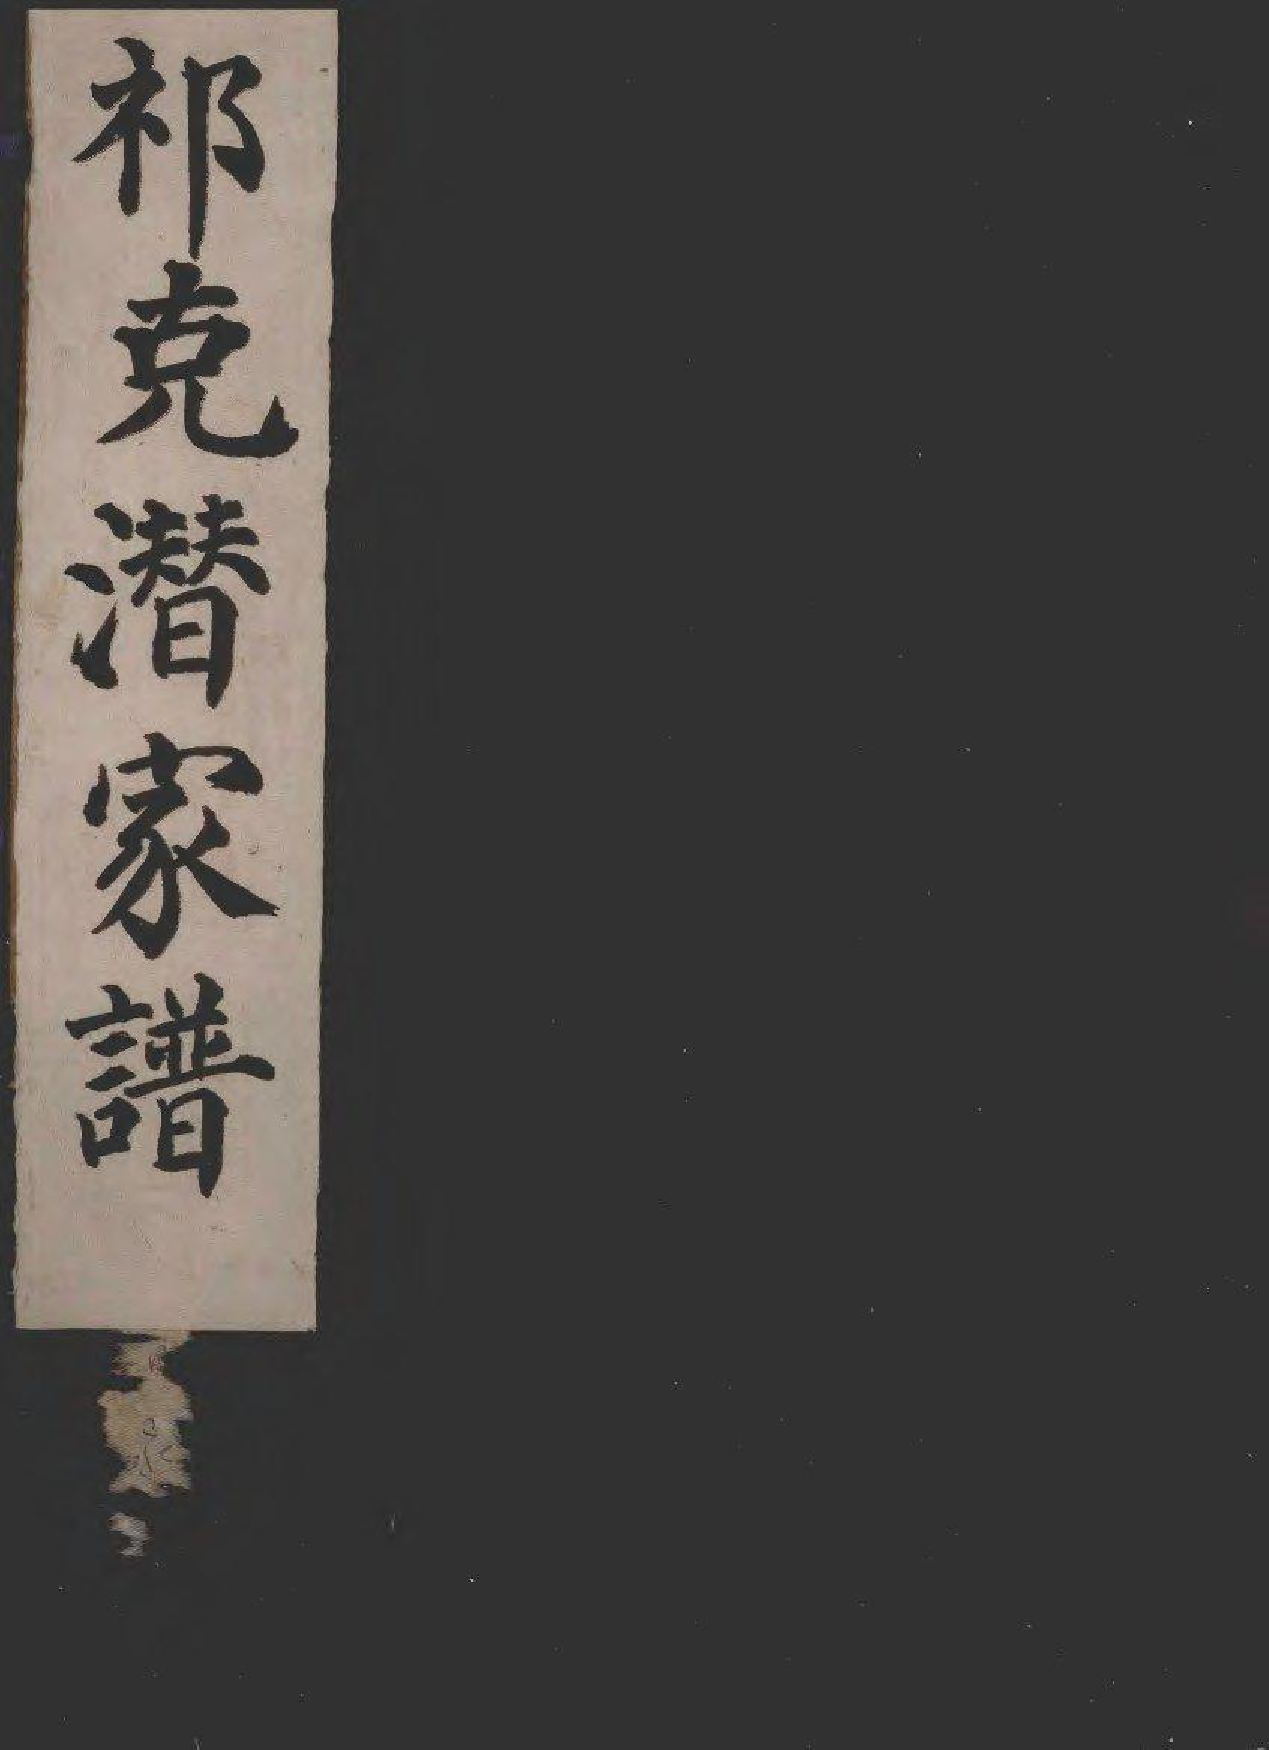 祁克潜家譜